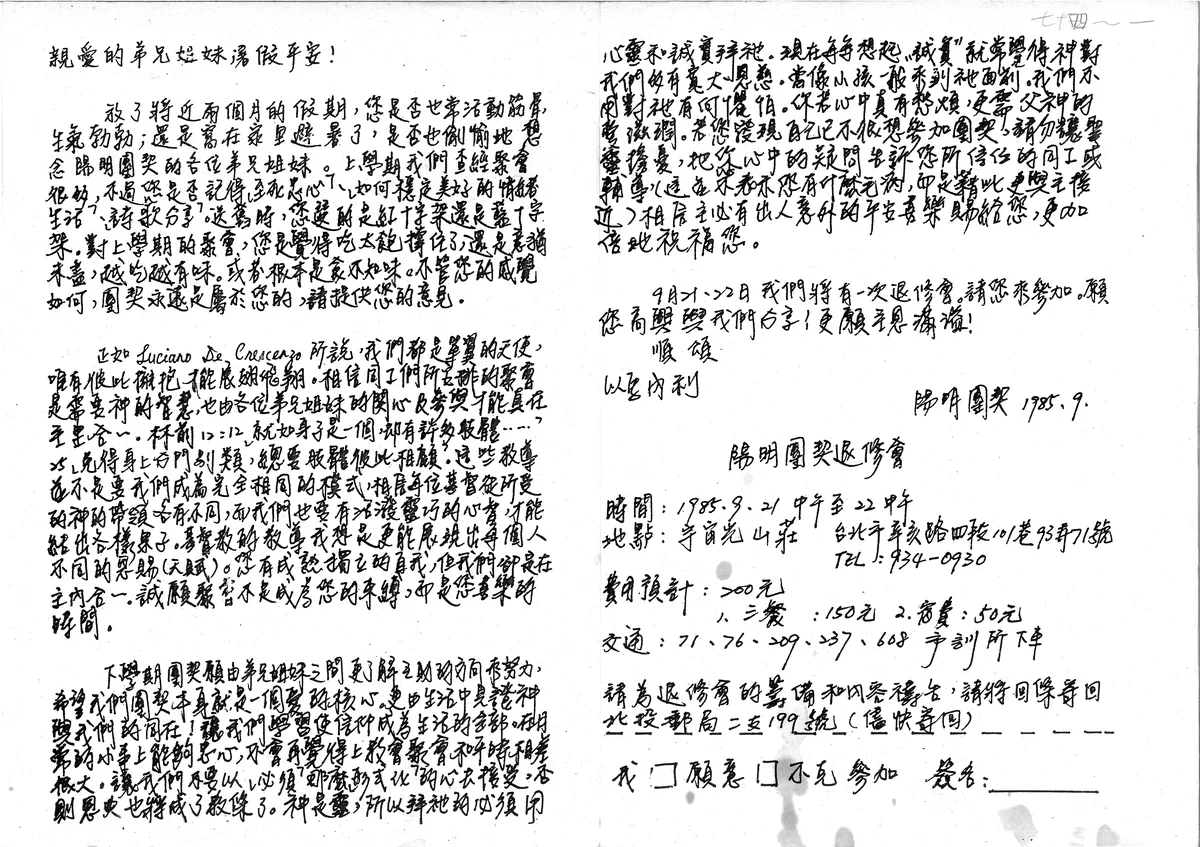 七十四~一
親愛的弟兄姐妹暑假平安!
放了將近兩個月的假期,您是否也常活動筋骨,
生氣勃勃;還是窩在家里避暑了,是否也偷偷地想
念陽明團契的各位弟兄姐妹。上學期我們查經聚會
很多,不過您是否記得「至死忠心」、「如何穩定美好的情緒
生活」、「詩歌分享」。送舊時,您選的是紅十字架還是藍十字
架。對上學期的聚會,您是覺得吃太飽撐住了,還是意猶
未盡,越吃越有味。或者根本是食不知味。不管您的感覺
如何,團契永遠是屬於您的,請提供您的意見。
正如 Luciano De Crescenzo 所說,我們都是單翼的天使,
唯有彼此擁抱才能展翅飛翔。相信同工們所安排的聚會
是需要神的智慧,也由各位弟兄姐妹的関心及參與才能真在
主里合一。林前12:12「就如身子是一個,却有許多肢體……」
25「免得身上分門別類,總要肢體彼此相顧」。這些教導
並不是要我們成為完全相同的模式,相信每位基督徒所受
的神的帶領各有不同,而我們也要有活潑靈巧的心智,才能
結出各樣果子。基督教的教導我想是更能展現出每個人
不同的恩賜(天賦)。您有成熟獨立的自我,但我們卻是在
主內合一。誠願聚會不是成為您的束縛,而是您喜樂的
時間。
下學期團契願由弟兄姐妹之間更了解互助的方向來努力,
希望我們團契本身就是一個愛的核心。更由生活中見證神
與我們的同在!讓我們學習使信仰成為生活的全部。在日
常的小事上能夠忠心,不會再覺得上教會聚會和平時相差
很大。讓我們不要以「必須」那麼形式化的心去接受,否
則恩典也將成了教條了。神是靈,所以拜祂的必須用
心靈和誠實拜祂。現在每每想起〝誠實〞就常覺得神對
我們的有寬大、恩慈。當像小孩一般來到祂面前。我們不
用對祂有何懼怕。你若心中真有愁煩,更需父神的
愛滋潤。若您發現自己已不很想參加團契,請勿讓聖
靈擔憂,把您心中的疑問告訴您所信任的同工或
輔導(這並不表示您有什麼毛病,卻是藉此更與主接
近)相信主必有出人意外的平安喜樂賜給您,更加
倍地祝福您。
9月21、22日我們將有一次退修會。請您來參加。願
您高興與我們分享!更願主恩滿溢!
順頌
以馬內利
陽明團契 1985.9.
陽明團契退修會
時間:1985.9.21 中午至22中午
地點:宇宙光山莊 台北市辛亥路四段101巷93弄71號
TEL:934-0930
費用預計:200元
1.三餐:150元 2.宿費:50元
交通:71、76、209、237、608 手訓所下車
請為退修會的籌備和內容禱告,請將回條寄回
北投郵局二支199號(儘快寄回)
我□願意□不克參加 簽名: